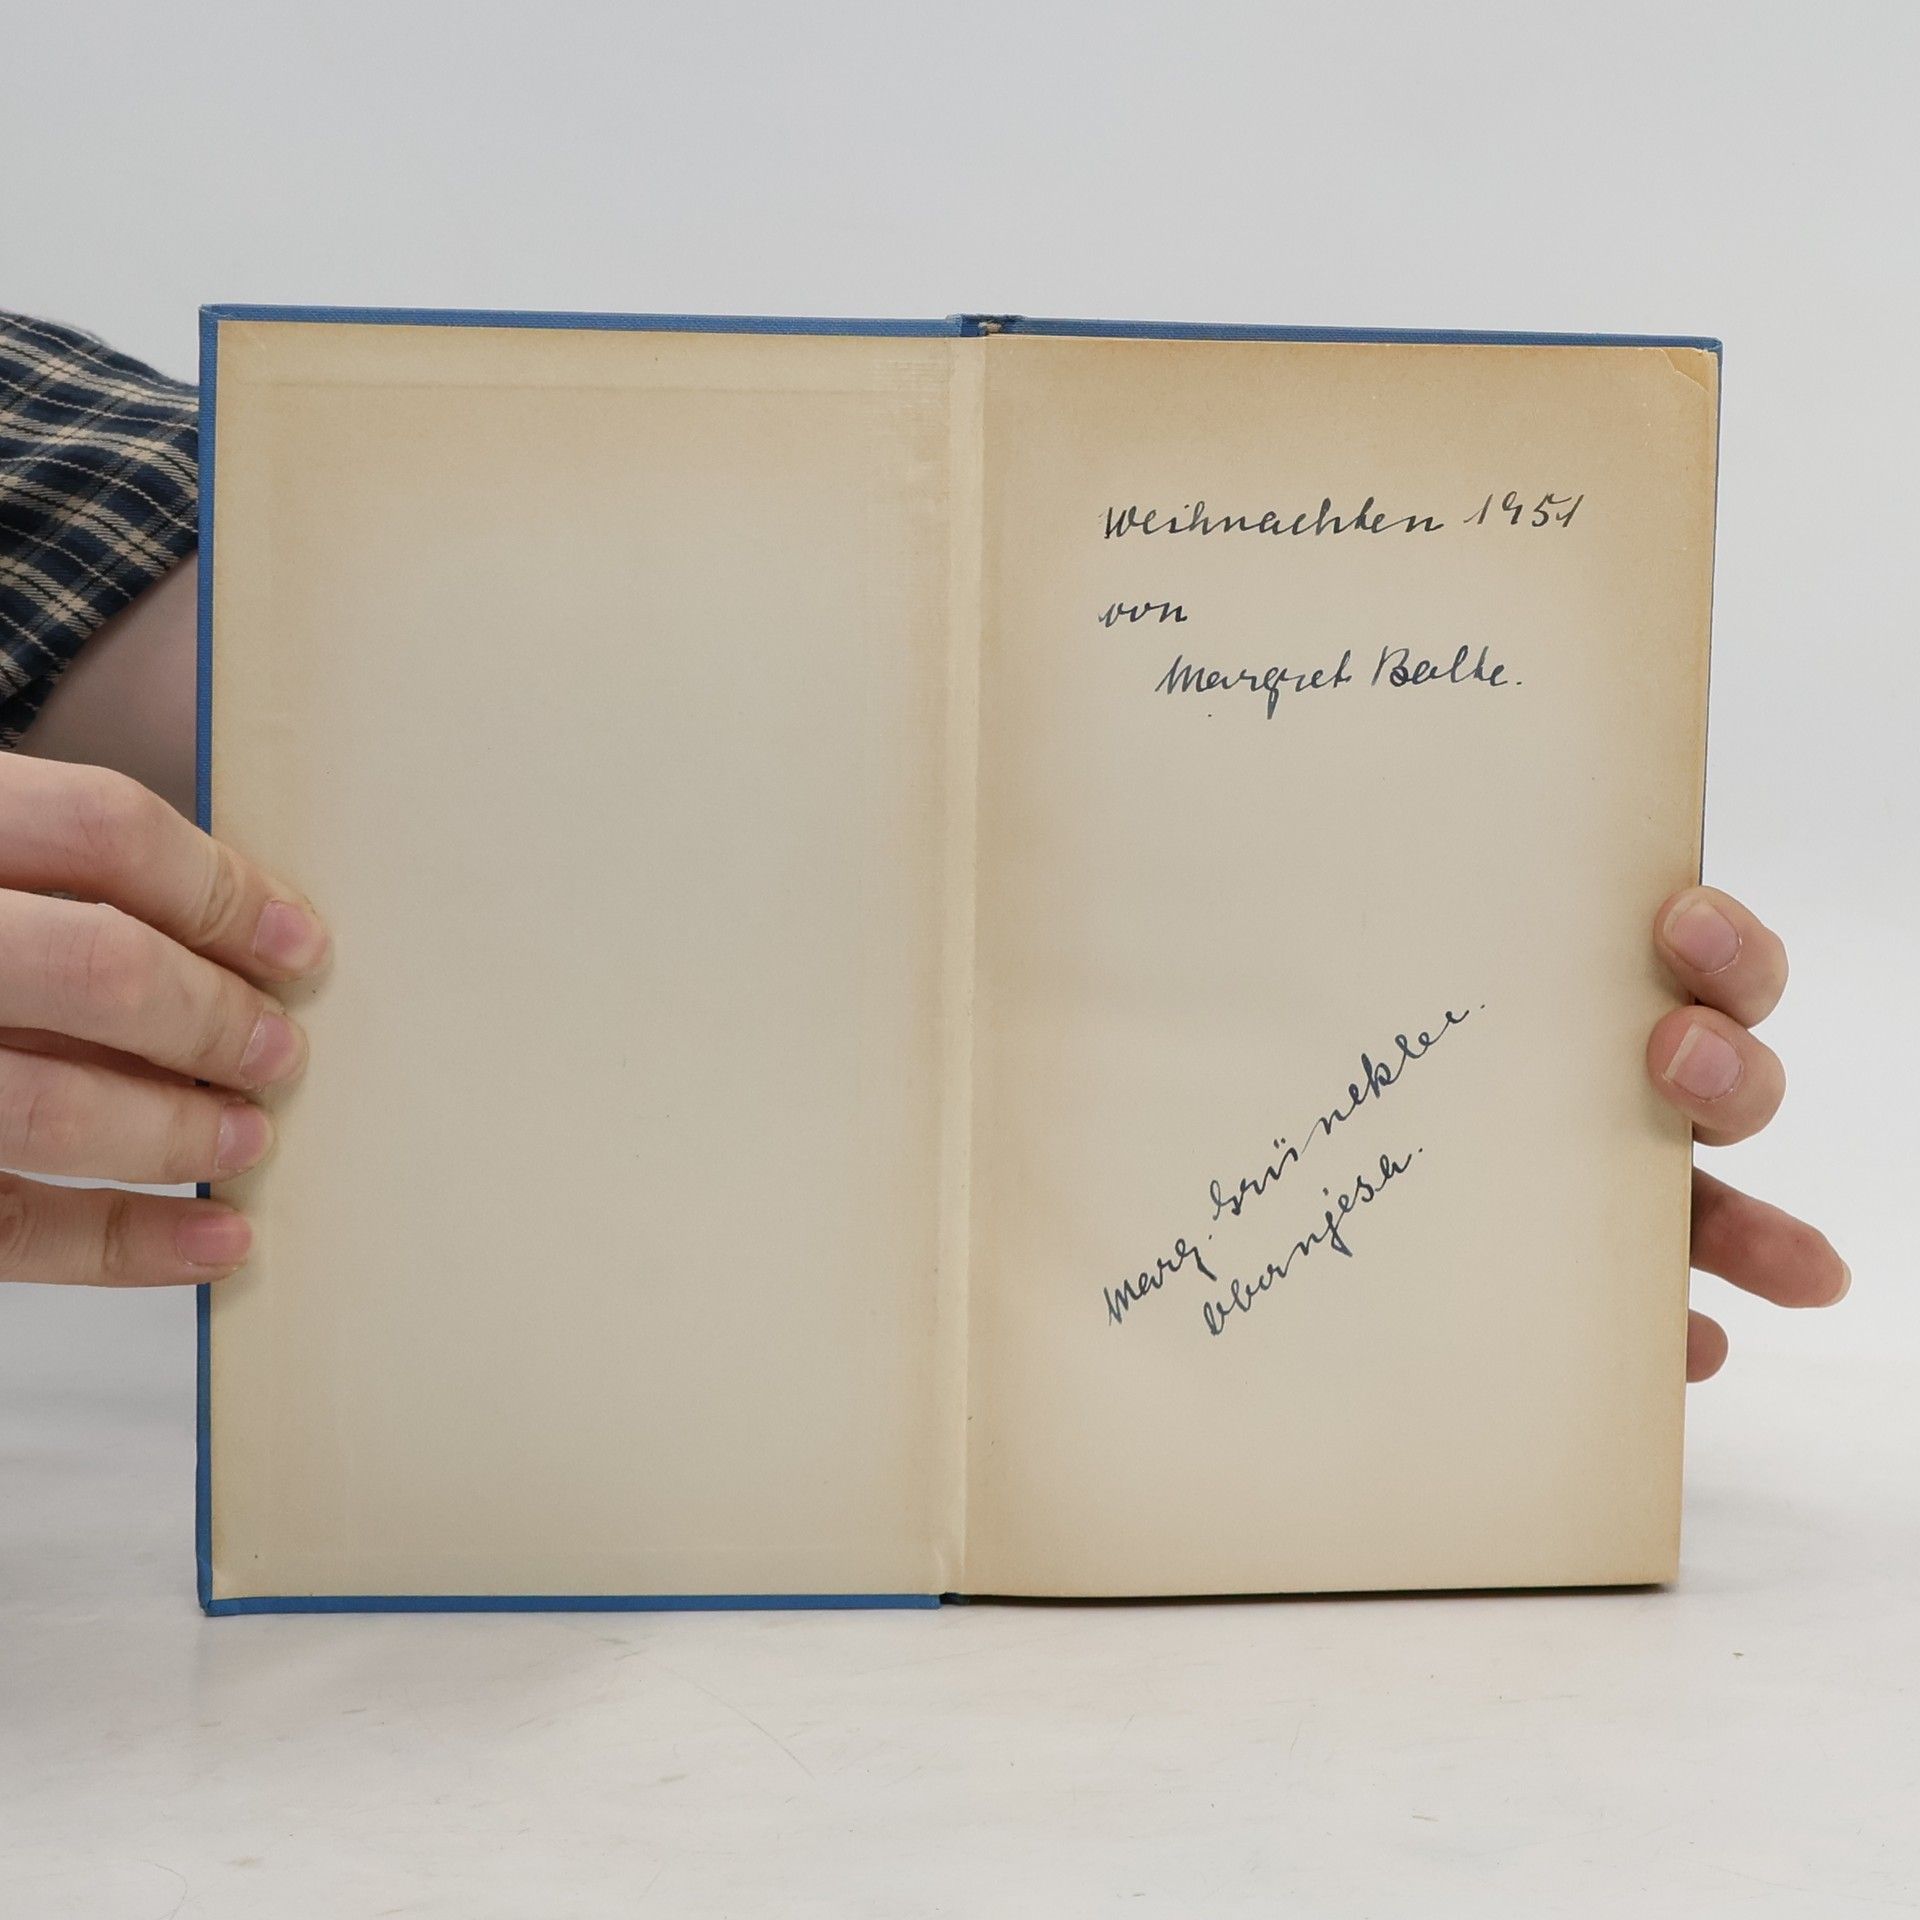 Weihnachten 1951
von
Margret Balke.
Marg. Grüneklee.
Obernjesa.